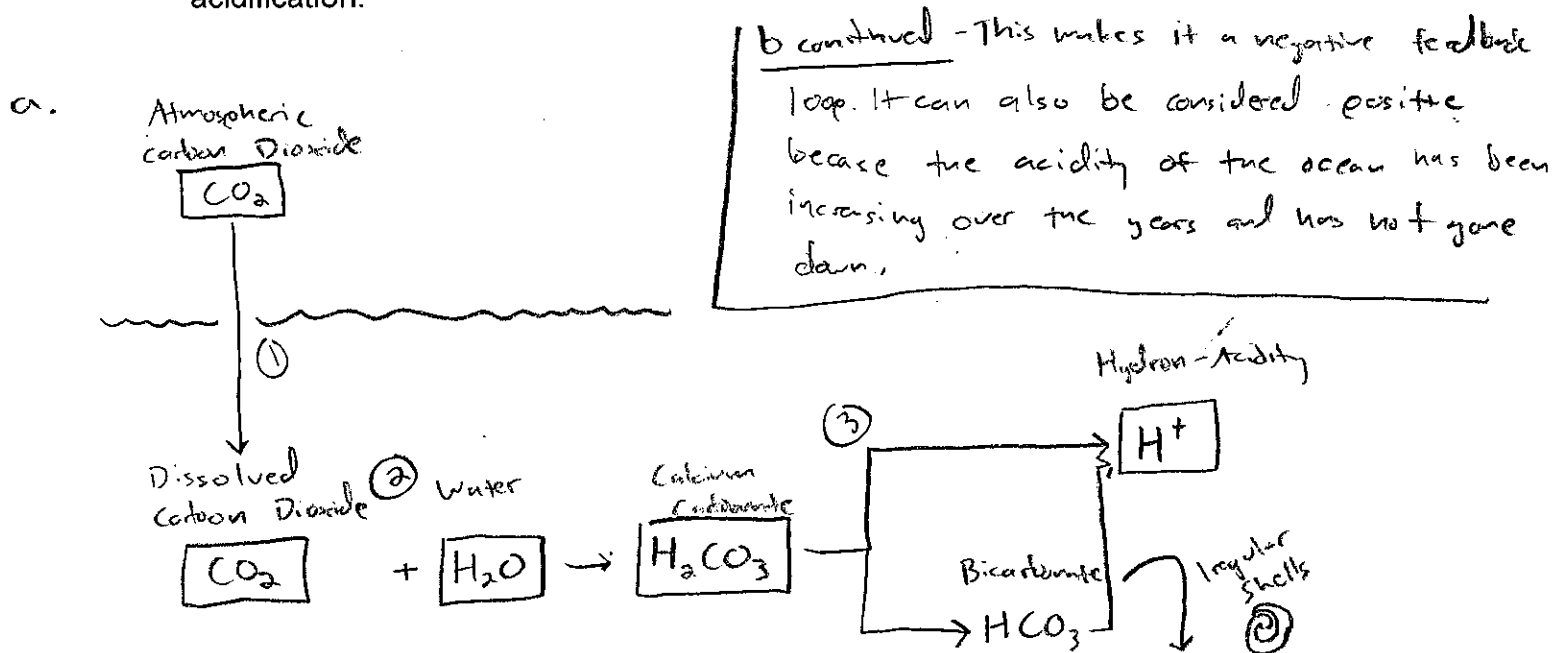 acidification.
b continued - This makes it a negative feedback
loop. It can also be considered positive
becase the acidity of the ocean has been
increasing over the years and has not gone
down.
a.
Atmospheric
carbon Dioxide
CO₂
①
Hydron - Acidity
③
H⁺
Dissolved
Carbon Dioxide ② Water
Calcium
Carbonate
CO₂ + H₂O → H₂CO₃
Bicarbonate
HCO₃
Iregular
Shells